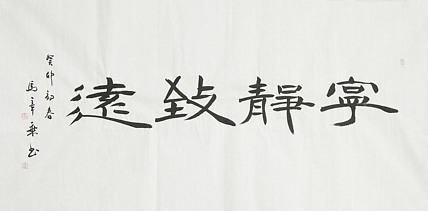 寧靜致遠
癸卯初春
馬章乘書